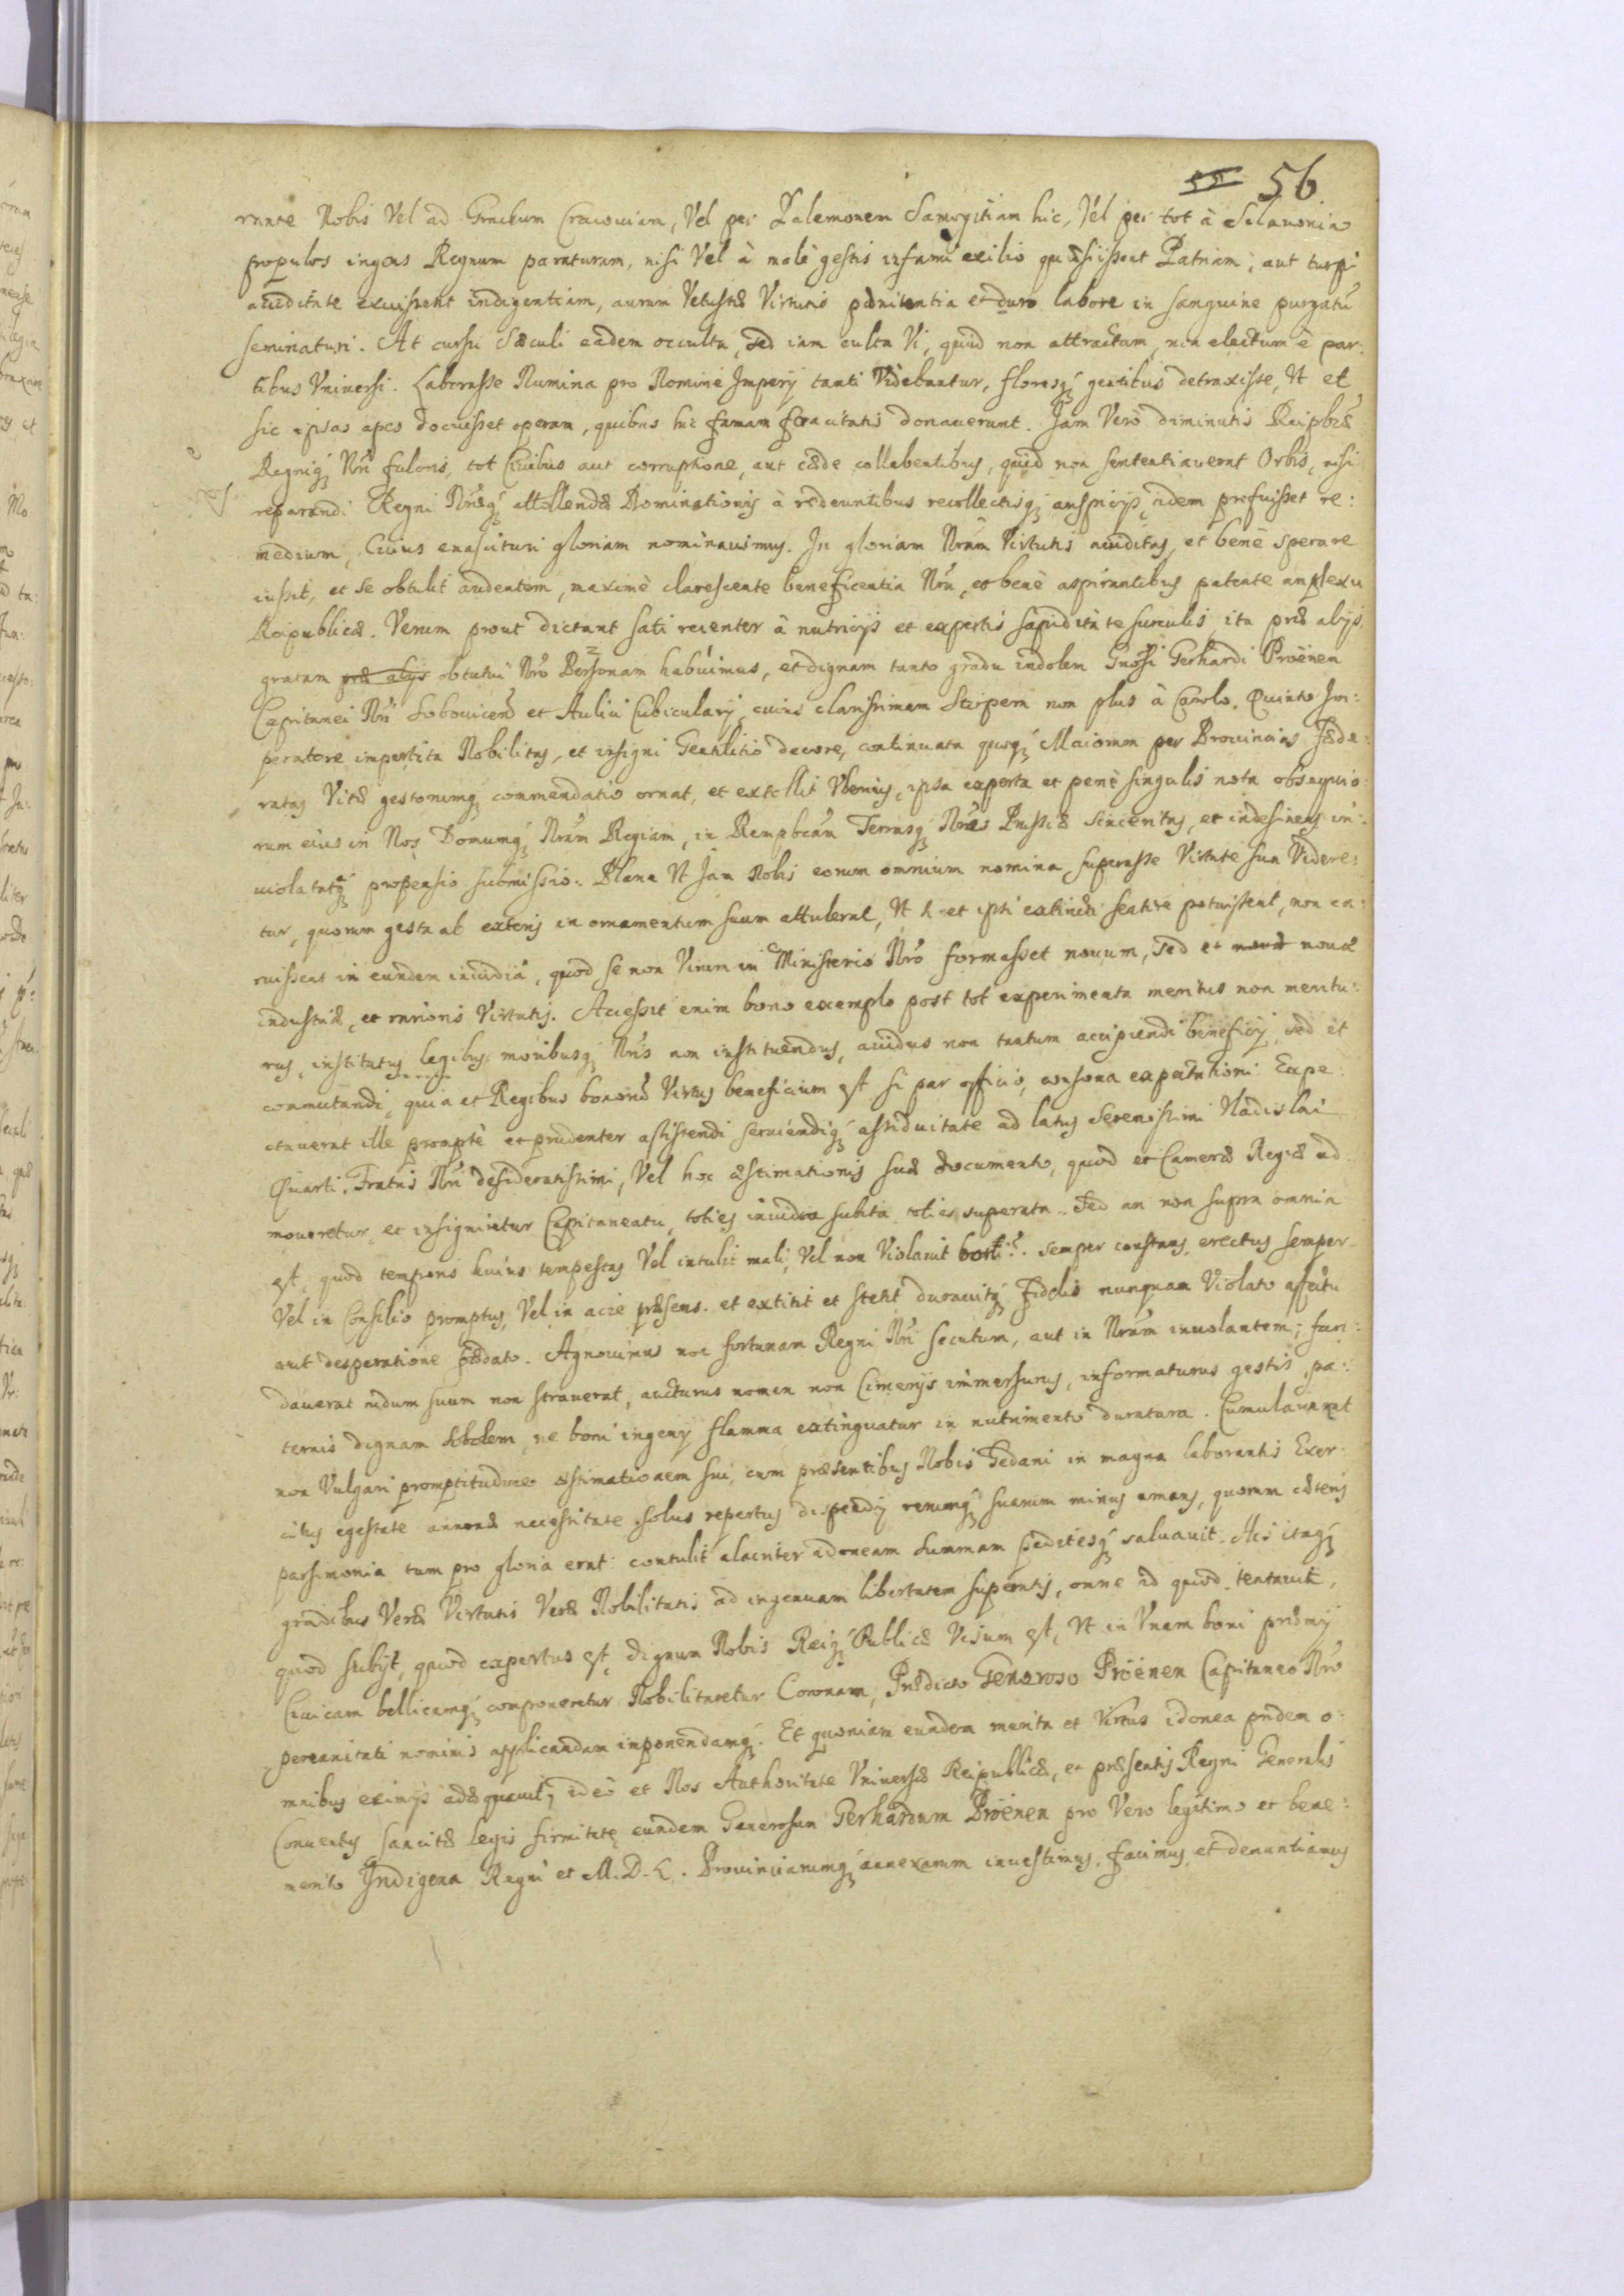 55 56
rante Nobis Vel ad Gracchum Cracouiam, Vel per Palemonem Samogitiam hic, Vel per tot à Sclauonia
populos ingens Regnum paraturam, nisi Vel à malè gestis infami exilio quæsijssent Patriam, aut turpi
auiditate exuissent indigentiam, aurum Vetustæ Virtutis pœnitentia et duro labore in sanguine purgatũ
seminaturi. At cursu Sæculi eadem occulta, sed iam culta Vi, quid non attractum, non electum è par:
tibus Vniuersi. Laborasse Numina pro Nomine Imperij tanti Videbantur, floresq́ gentibus detraxisse, Vt et
sic ipsas apes docuisset operam, quibus hic famam feracitatis donauerunt. Jam Verò diminutis Reipbcæ
Regniq́ Nr̃i fulcris, tot Ciuibus aut corruptione, aut cæde collabentibus, quid non sententiauerat Orbis, nisi
reparandi Regni Nr̃æq́ attollendæ Dominationis à redeuntibus recollectisq́ auspicijs, idem profuisset re:
medium, Cuius enascituri gloriam nominauimus. In gloriam Nr̃am Virtutis auiditas, et benè sperare
iussit, et se obtulit audentem, maximè clarescente beneficentia Nr̃a, et benè aspirantibus patente amplexu
Reipublicæ. Verum prout dictant sati recenter à nutricijs et expertis sapiditate surculis, ita præ alijs
gratam præ alijs obtutui Nr̃o Personam habuimus, et dignam tanto gradu indolem Gnosi Gerhardi Proënen
Capitanei Nr̃i et Aulici Cubicularij, cuius clarissimam Stirpem non plus à Carolo Quinto Im:
peratore impertita Nobilitas, et insigni Gentilitio decore, continuata quoq́ Maiorum per Prouincias Fœde:
ratas Vitæ gestorumq́ commendatio ornat, et extollit Vberius, ipsa experta et penè singulis nota obsequio:
rum eius in Nos Domumq́ Nr̃am Regiam, in Rempbcam Terrasq́ Nr̃as Prussiæ sinceritas, et indesinens in:
uiolataq́ propensio submissio. Planè Vt Jam Nobis eorum omnium nomina, superasse Virtute sua Videre:
tur, quorum gesta ab exteris in ornamentum suum attulerat, Vt et ipsi extincti sentire potuissent, non ca:
ruissent in eundem inuidiâ, quod se non Virum in Ministerio Nr̃o formasset nouum, sed et nouæ
industriæ, et rarioris Virtutis. Accessit enim bono exemplo post tot experimenta meritus non meritu:
rus, institutus legibus moribusq́ Nr̃is non instituendus, auidus non tantum accipiendi beneficij, sed et
commutandi, quia et Regibus bonorũ Virtus beneficium est si par officio, consona expectationi. Expe:
ctauerat ille promptè et prudenter assistendi seruiendiq́ assiduitate ad latus Serenissimi Vladislai
Quarti, Fratris Nr̃i desideratissimi, Vel hoc æstimationis suæ documento, quod et Cameræ Regiæ ad:
moueretur, et insigniretur Capitaneatu, toties inuidia subita toties superata. Sed an non supra omnia
est, quod temporis huius tempestas Vel intulit mali, Vel non Violauit boni? Semper constans, erectus semper
Vel in Consilio promptus, Vel in acie præsens, et extitit et stetit durauitq́ Fidelis nunquam Violato affectu
aut desperatione fœdato. Agnouimus non fortunam Regni Nr̃i secutum, aut in Nr̃am inuolantem; fun:
dauerat nidum suum non strauerat, aucturus nomen non Cimerijs immersurus, informaturus gestis pa:
ternis dignam Sobolem, ne boni ingenij flamma extinguatur in nutrimento duratura. Cumulauerat
non Vulgari promptitudine æstimationem sui, cum præsentibus Nobis Gedani in magna laborantis Exer:
citus egestate annonæ necessitate solus repertus dispendij rerumq́ suarum minus amans, quorum cæteris
parsimonia tum pro gloria erat: contulit alacriter idoneam Summam peditesq́ saluauit. His itaq́
gradibus Veræ Virtutis Veræ Nobilitatis ad ingenuam libertatem superatis, omne id quod tentauit,
quod subijt, quod expertus est, dignum Nobis Reiq́ Publicæ Visum est, Vt in Vnam boni præmij
Ciuicam bellicamq́ componeretur Nobilitaretur Coronam, Prædicto Generoso Proënen Capitaneo Nr̃o
perennitati nominis applicandam inponendamq́. Et quoniam eundem merita et Virtus idonea pridem o:
mnibus eximijs adæquauit, ideò et Nos Authoritate Vniuersæ Reipublicæ, et præsentis Regni Generalis
Conuentus sancitæ legis firmitate eundem Generosum Gerhardum Proënen pro Vero legitimo et bene:
merito Indigena Regni et M. D. L. Prouinciarumq́ annexarum inuestimus, facimus et denuntiamus